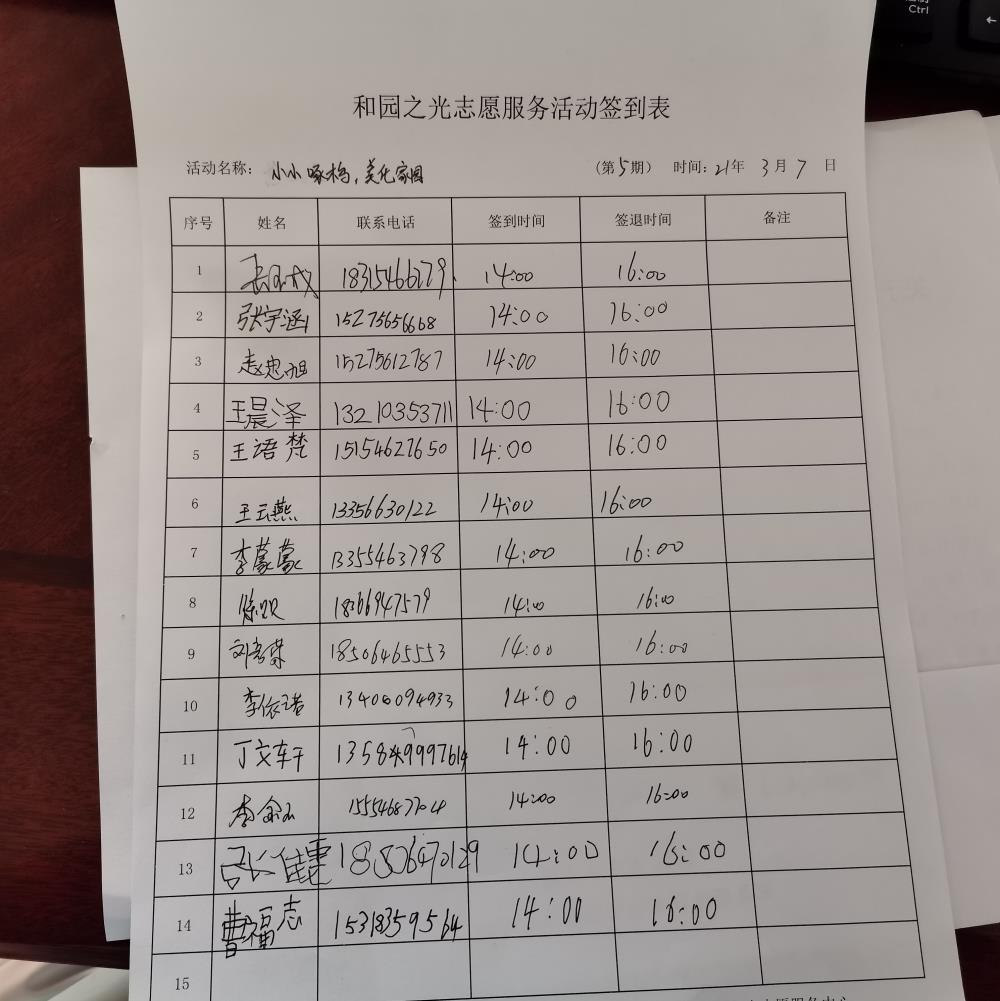 Ctrl
和园之光志愿服务活动签到表
活动名称: 小小啄木鸟,美化家园 (第5期) 时间:21年 3月7日
序号 姓名 联系电话 签到时间 签退时间 备注
1 18315466279 14:00 16:00
2 张宇涵 15275656668 14:00 16:00
3 赵忠旭 15275612787 14:00 16:00
4 王晨泽 13210353711 14:00 16:00
5 王语梵 15154627650 14:00 16:00
6 王云燕 13356630122 14:00 16:00
7 李蒙蒙 13355463798 14:00 16:00
8 18366947579 14:00 16:00
9 18506465553 14:00 16:00
10 李依诺 13406094933 14:00 16:00
11 丁文轩 14:00 16:00
12 14:00 16:00
13 14:00 16:00
14 曹福志 15318359564 14:00 16:00
15
志愿服务中心